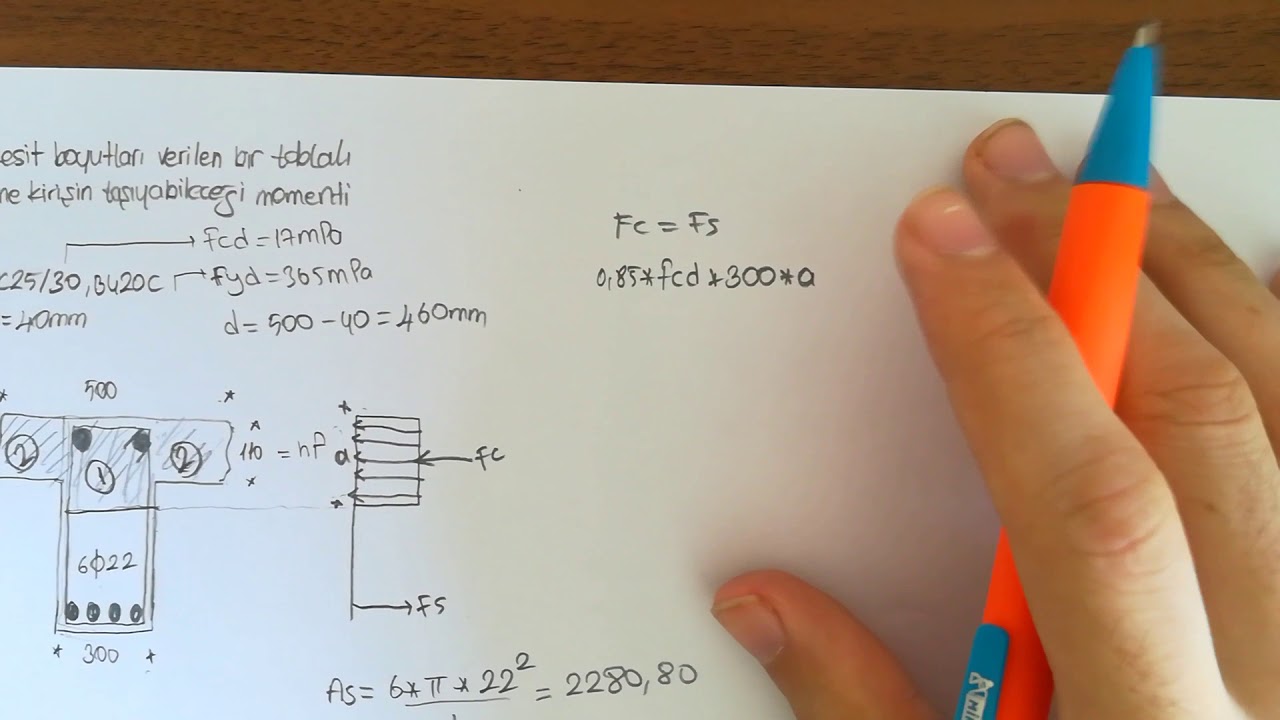 esit boyutları verilen bir tablalı
ne kirişin taşıyabileceği momenti
fcd = 17mPa
C25/30, B420C → fyd = 365mPa
= 40mm d = 500 - 40 = 460mm
500
110 = hf
2
1
2
a
Fc
6Φ22
Fs
300
As = 6*π*22² = 2280,80
Fc = Fs
0,85*fcd*300*a